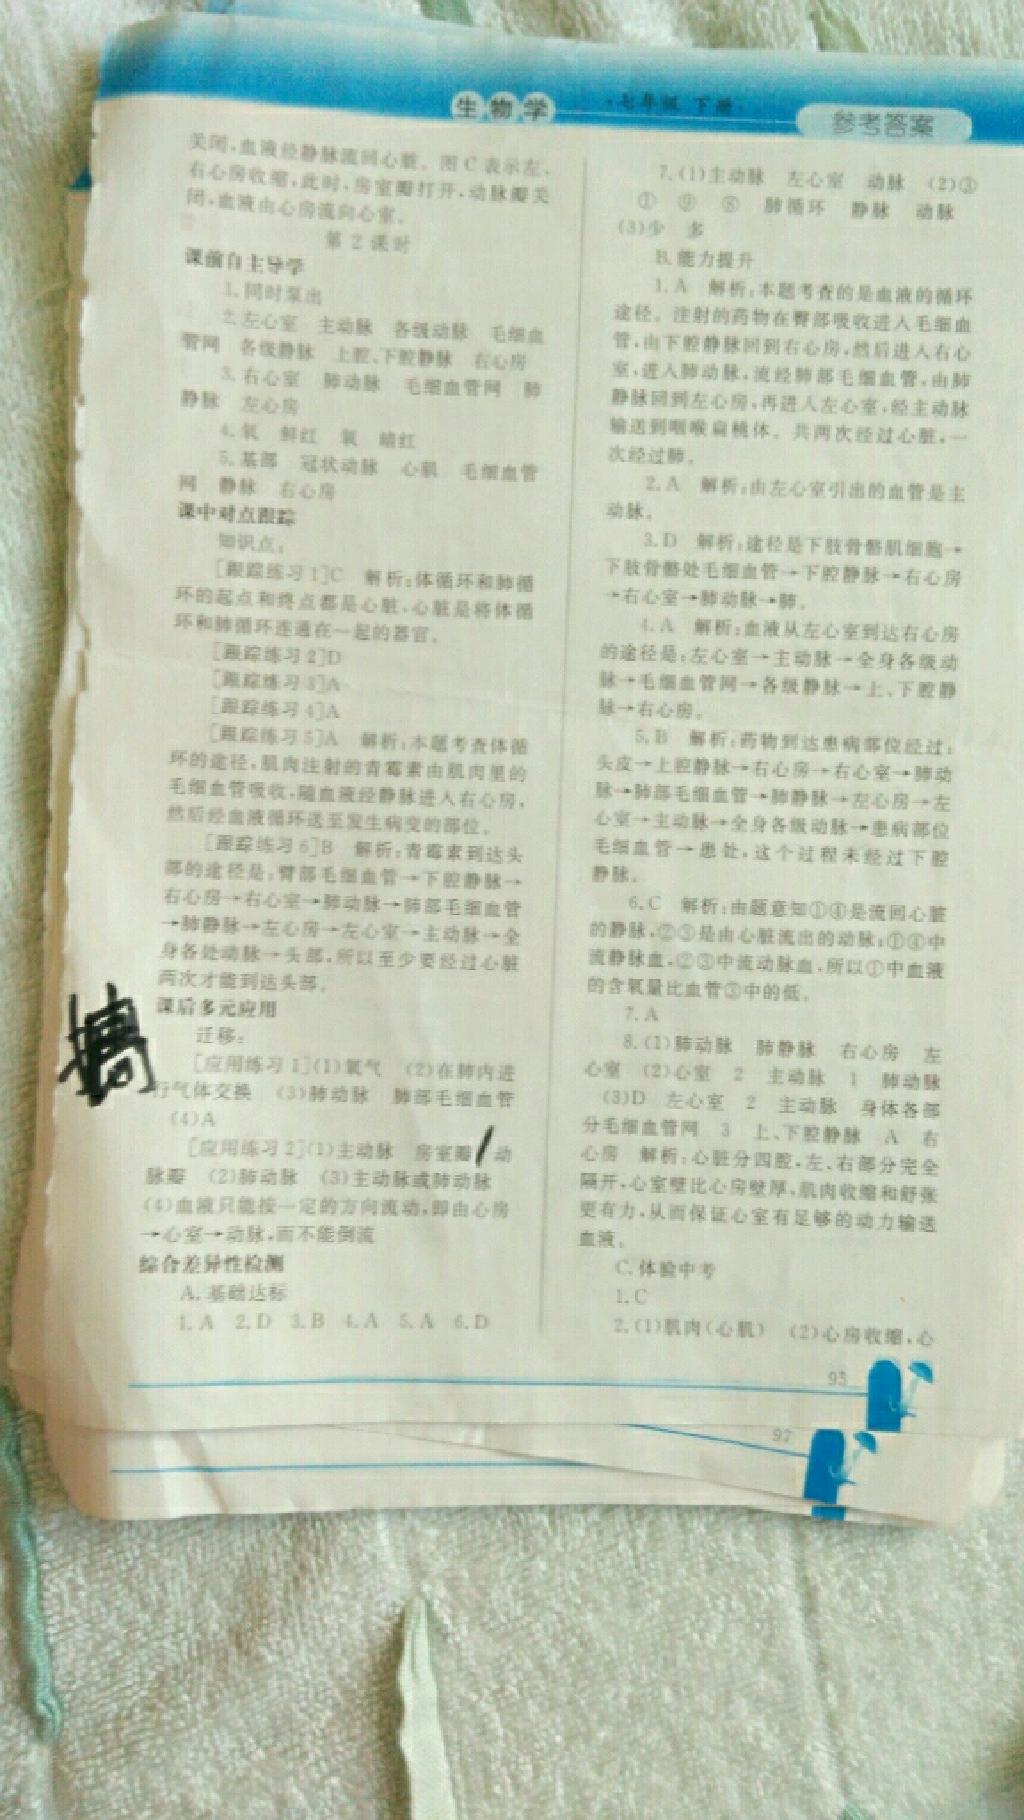 生物学
·七年级 下册·
参考答案
关闭,血液经静脉流回心脏。图C表示左、
右心房收缩,此时,房室瓣打开,动脉瓣关
闭,血液由心房流向心室。
第2课时
课前自主导学
1.同时泵出
2.左心室 主动脉 各级动脉 毛细血
管网 各级静脉 上腔、下腔静脉 右心房
3.右心室 肺动脉 毛细血管网 肺
静脉 左心房
4.氧 鲜红 氧 暗红
5.基部 冠状动脉 心肌 毛细血管
网 静脉 右心房
课中对点跟踪
知识点:
[跟踪练习1]C 解析:体循环和肺循
环的起点和终点都是心脏,心脏是将体循
环和肺循环连通在一起的器官。
[跟踪练习2]D
[跟踪练习3]A
[跟踪练习4]A
[跟踪练习5]A 解析:本题考查体循
环的途径,肌肉注射的青霉素由肌肉里的
毛细血管吸收,随血液经静脉进入右心房,
然后经血液循环送至发生病变的部位。
[跟踪练习6]B 解析:青霉素到达头
部的途径是:臀部毛细血管→下腔静脉→
右心房→右心室→肺动脉→肺部毛细血管
→肺静脉→左心房→左心室→主动脉→全
身各处动脉→头部,所以至少要经过心脏
两次才能到达头部。
课后多元应用
迁移:
[应用练习1](1)氧气 (2)在肺内进
行气体交换 (3)肺动脉 肺部毛细血管
(4)A
[应用练习2](1)主动脉 房室瓣 动
脉瓣 (2)肺动脉 (3)主动脉或肺动脉
(4)血液只能按一定的方向流动,即由心房
→心室→动脉,而不能倒流
综合差异性检测
A.基础达标
1.A 2.D 3.B 4.A 5.A 6.D
7.(1)主动脉 左心室 动脉 (2)③
① ⑨ ⑧ 肺循环 静脉 动脉
(3)少 多
B.能力提升
1.A 解析:本题考查的是血液的循环
途径。注射的药物在臀部吸收进入毛细血
管,由下腔静脉回到右心房,然后进入右心
室,进入肺动脉,流经肺部毛细血管,由肺
静脉回到左心房,再进入左心室,经主动脉
输送到咽喉扁桃体。共两次经过心脏,一
次经过肺。
2.A 解析:由左心室引出的血管是主
动脉。
3.D 解析:途径是下肢骨骼肌细胞→
下肢骨骼处毛细血管→下腔静脉→右心房
→右心室→肺动脉→肺。
4.A 解析:血液从左心室到达右心房
的途径是:左心室→主动脉→全身各级动
脉→毛细血管网→各级静脉→上、下腔静
脉→右心房。
5.B 解析:药物到达患病部位经过:
头皮→上腔静脉→右心房→右心室→肺动
脉→肺部毛细血管→肺静脉→左心房→左
心室→主动脉→全身各级动脉→患病部位
毛细血管→患处,这个过程未经过下腔
静脉。
6.C 解析:由题意知①④是流回心脏
的静脉,②③是由心脏流出的动脉;①④中
流静脉血,②③中流动脉血,所以①中血液
的含氧量比血管③中的低。
7.A
8.(1)肺动脉 肺静脉 右心房 左
心室 (2)心室 2 主动脉 1 肺动脉
(3)D 左心室 2 主动脉 身体各部
分毛细血管网 3 上、下腔静脉 A 右
心房 解析:心脏分四腔,左、右部分完全
隔开,心室壁比心房壁厚,肌肉收缩和舒张
更有力,从而保证心室有足够的动力输送
血液。
C.体验中考
1.C
2.(1)肌肉(心肌) (2)心房收缩,心
95
97